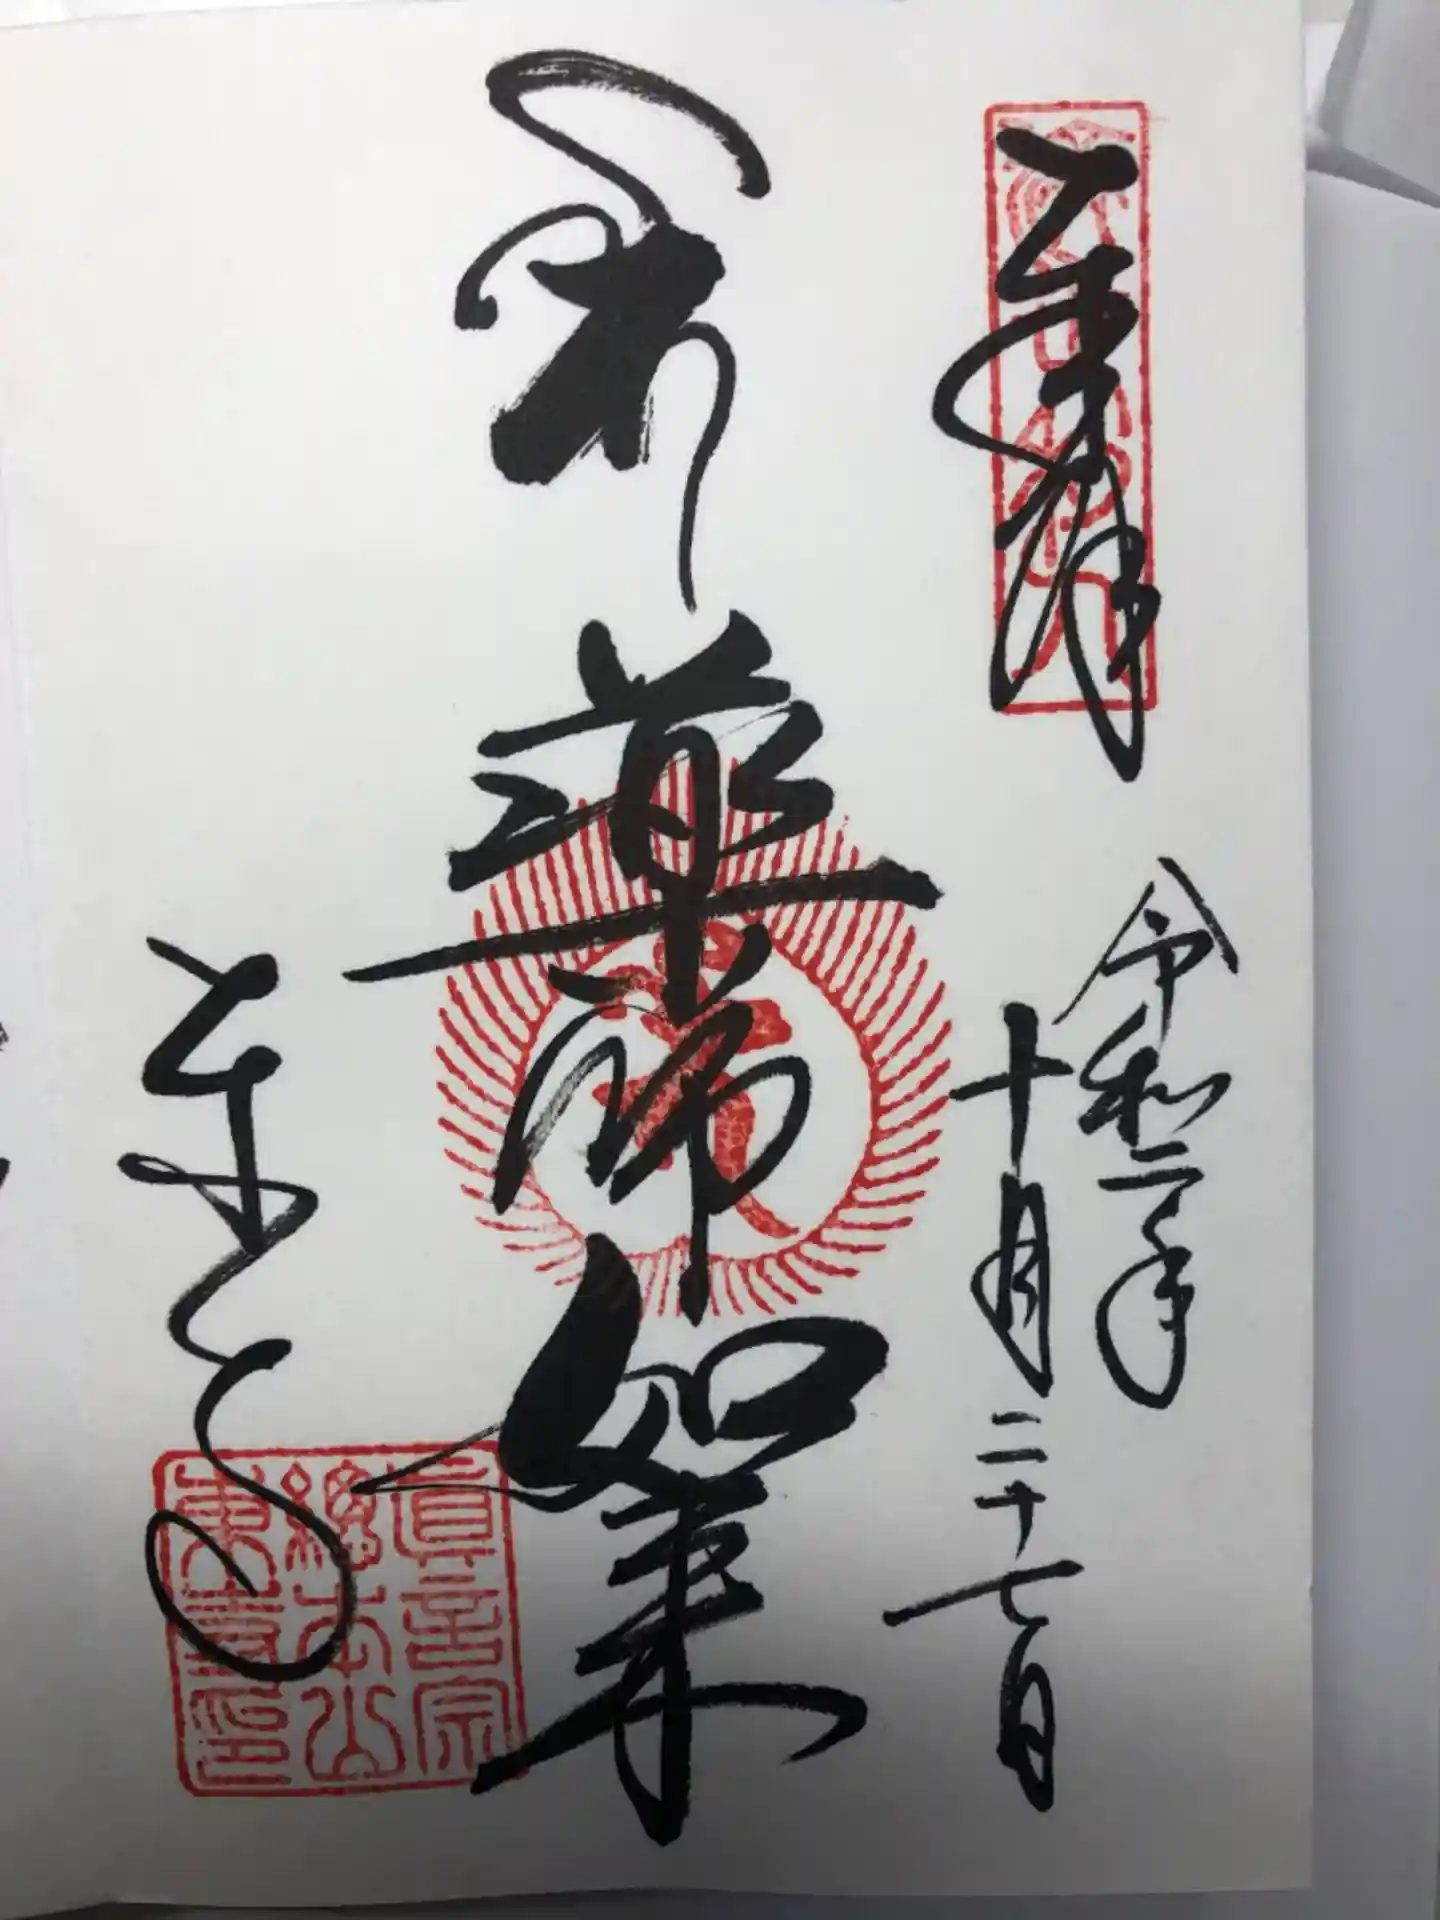 奉拝
令和二年
十月二十七日
薬師如来
東寺
眞言宗
總本山
東寺印